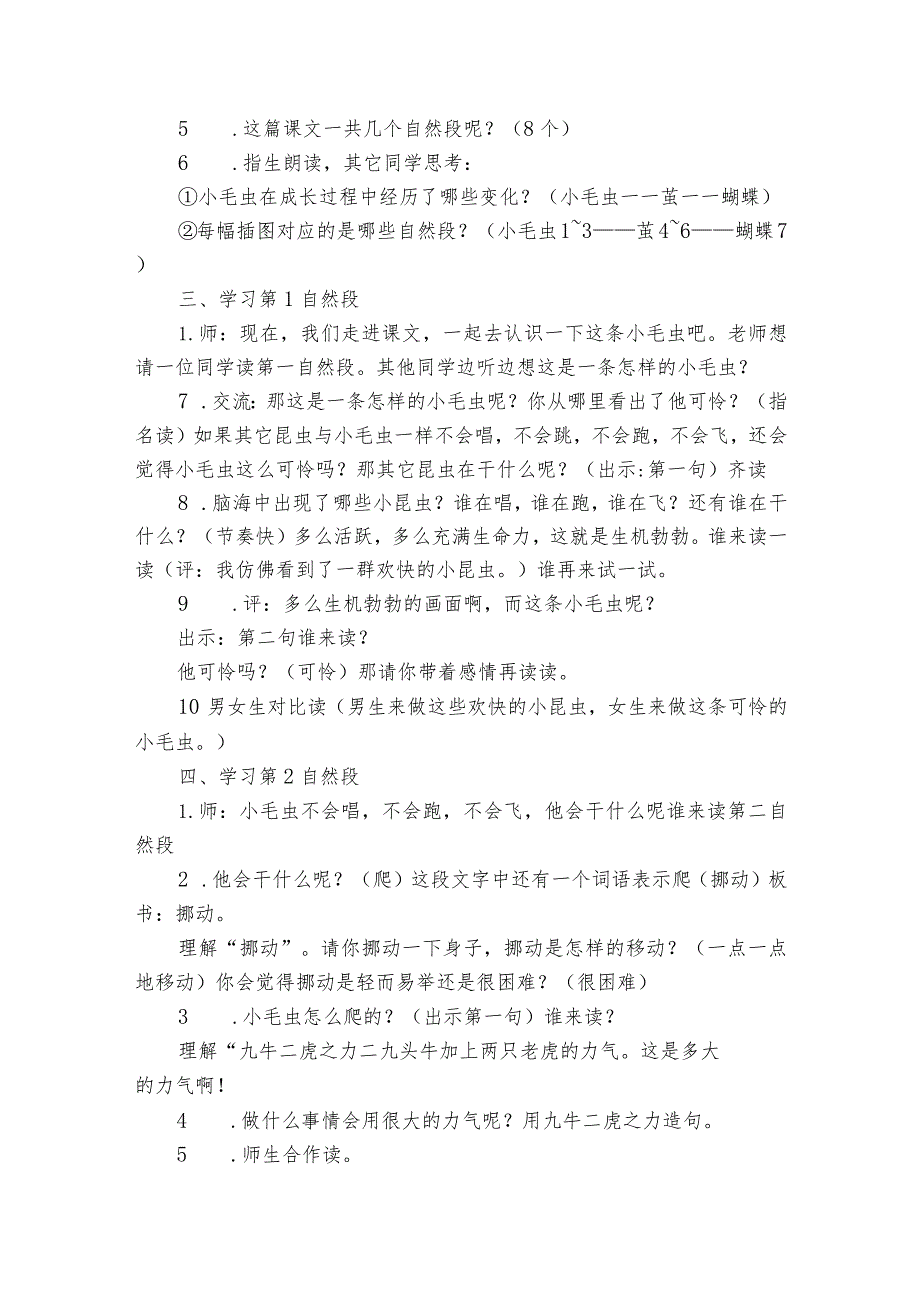 5 .这篇课文一共几个自然段呢？（8个）
6 .指生朗读，其它同学思考：
①小毛虫在成长过程中经历了哪些变化？（小毛虫一一茧一一蝴蝶）
②每幅插图对应的是哪些自然段？（小毛虫1~3——茧4~6——蝴蝶7
）
三、学习第1自然段
1.师：现在，我们走进课文，一起去认识一下这条小毛虫吧。老师想
请一位同学读第一自然段。其他同学边听边想这是一条怎样的小毛虫？
7 .交流：那这是一条怎样的小毛虫呢？你从哪里看出了他可怜？（指
名读）如果其它昆虫与小毛虫一样不会唱，不会跳，不会跑，不会飞，还会
觉得小毛虫这么可怜吗？那其它昆虫在干什么呢？（出示:第一句）齐读
8 .脑海中出现了哪些小昆虫？谁在唱，谁在跑，谁在飞？还有谁在干
什么？（节奏快）多么活跃，多么充满生命力，这就是生机勃勃。谁来读一
读（评：我仿佛看到了一群欢快的小昆虫。）谁再来试一试。
9 .评：多么生机勃勃的画面啊，而这条小毛虫呢？
出示：第二句谁来读？
他可怜吗？（可怜）那请你带着感情再读读。
10男女生对比读（男生来做这些欢快的小昆虫，女生来做这条可怜的
小毛虫。）
四、学习第2自然段
1.师：小毛虫不会唱，不会跑，不会飞，他会干什么呢谁来读第二自
然段
2 .他会干什么呢？（爬）这段文字中还有一个词语表示爬（挪动）板
书：挪动。
理解“挪动”。请你挪动一下身子，挪动是怎样的移动？（一点一点
地移动）你会觉得挪动是轻而易举还是很困难？（很困难）
3 .小毛虫怎么爬的？（出示第一句）谁来读？
理解“九牛二虎之力二九头牛加上两只老虎的力气。这是多大
的力气啊！
4 .做什么事情会用很大的力气呢？用九牛二虎之力造句。
5 .师生合作读。